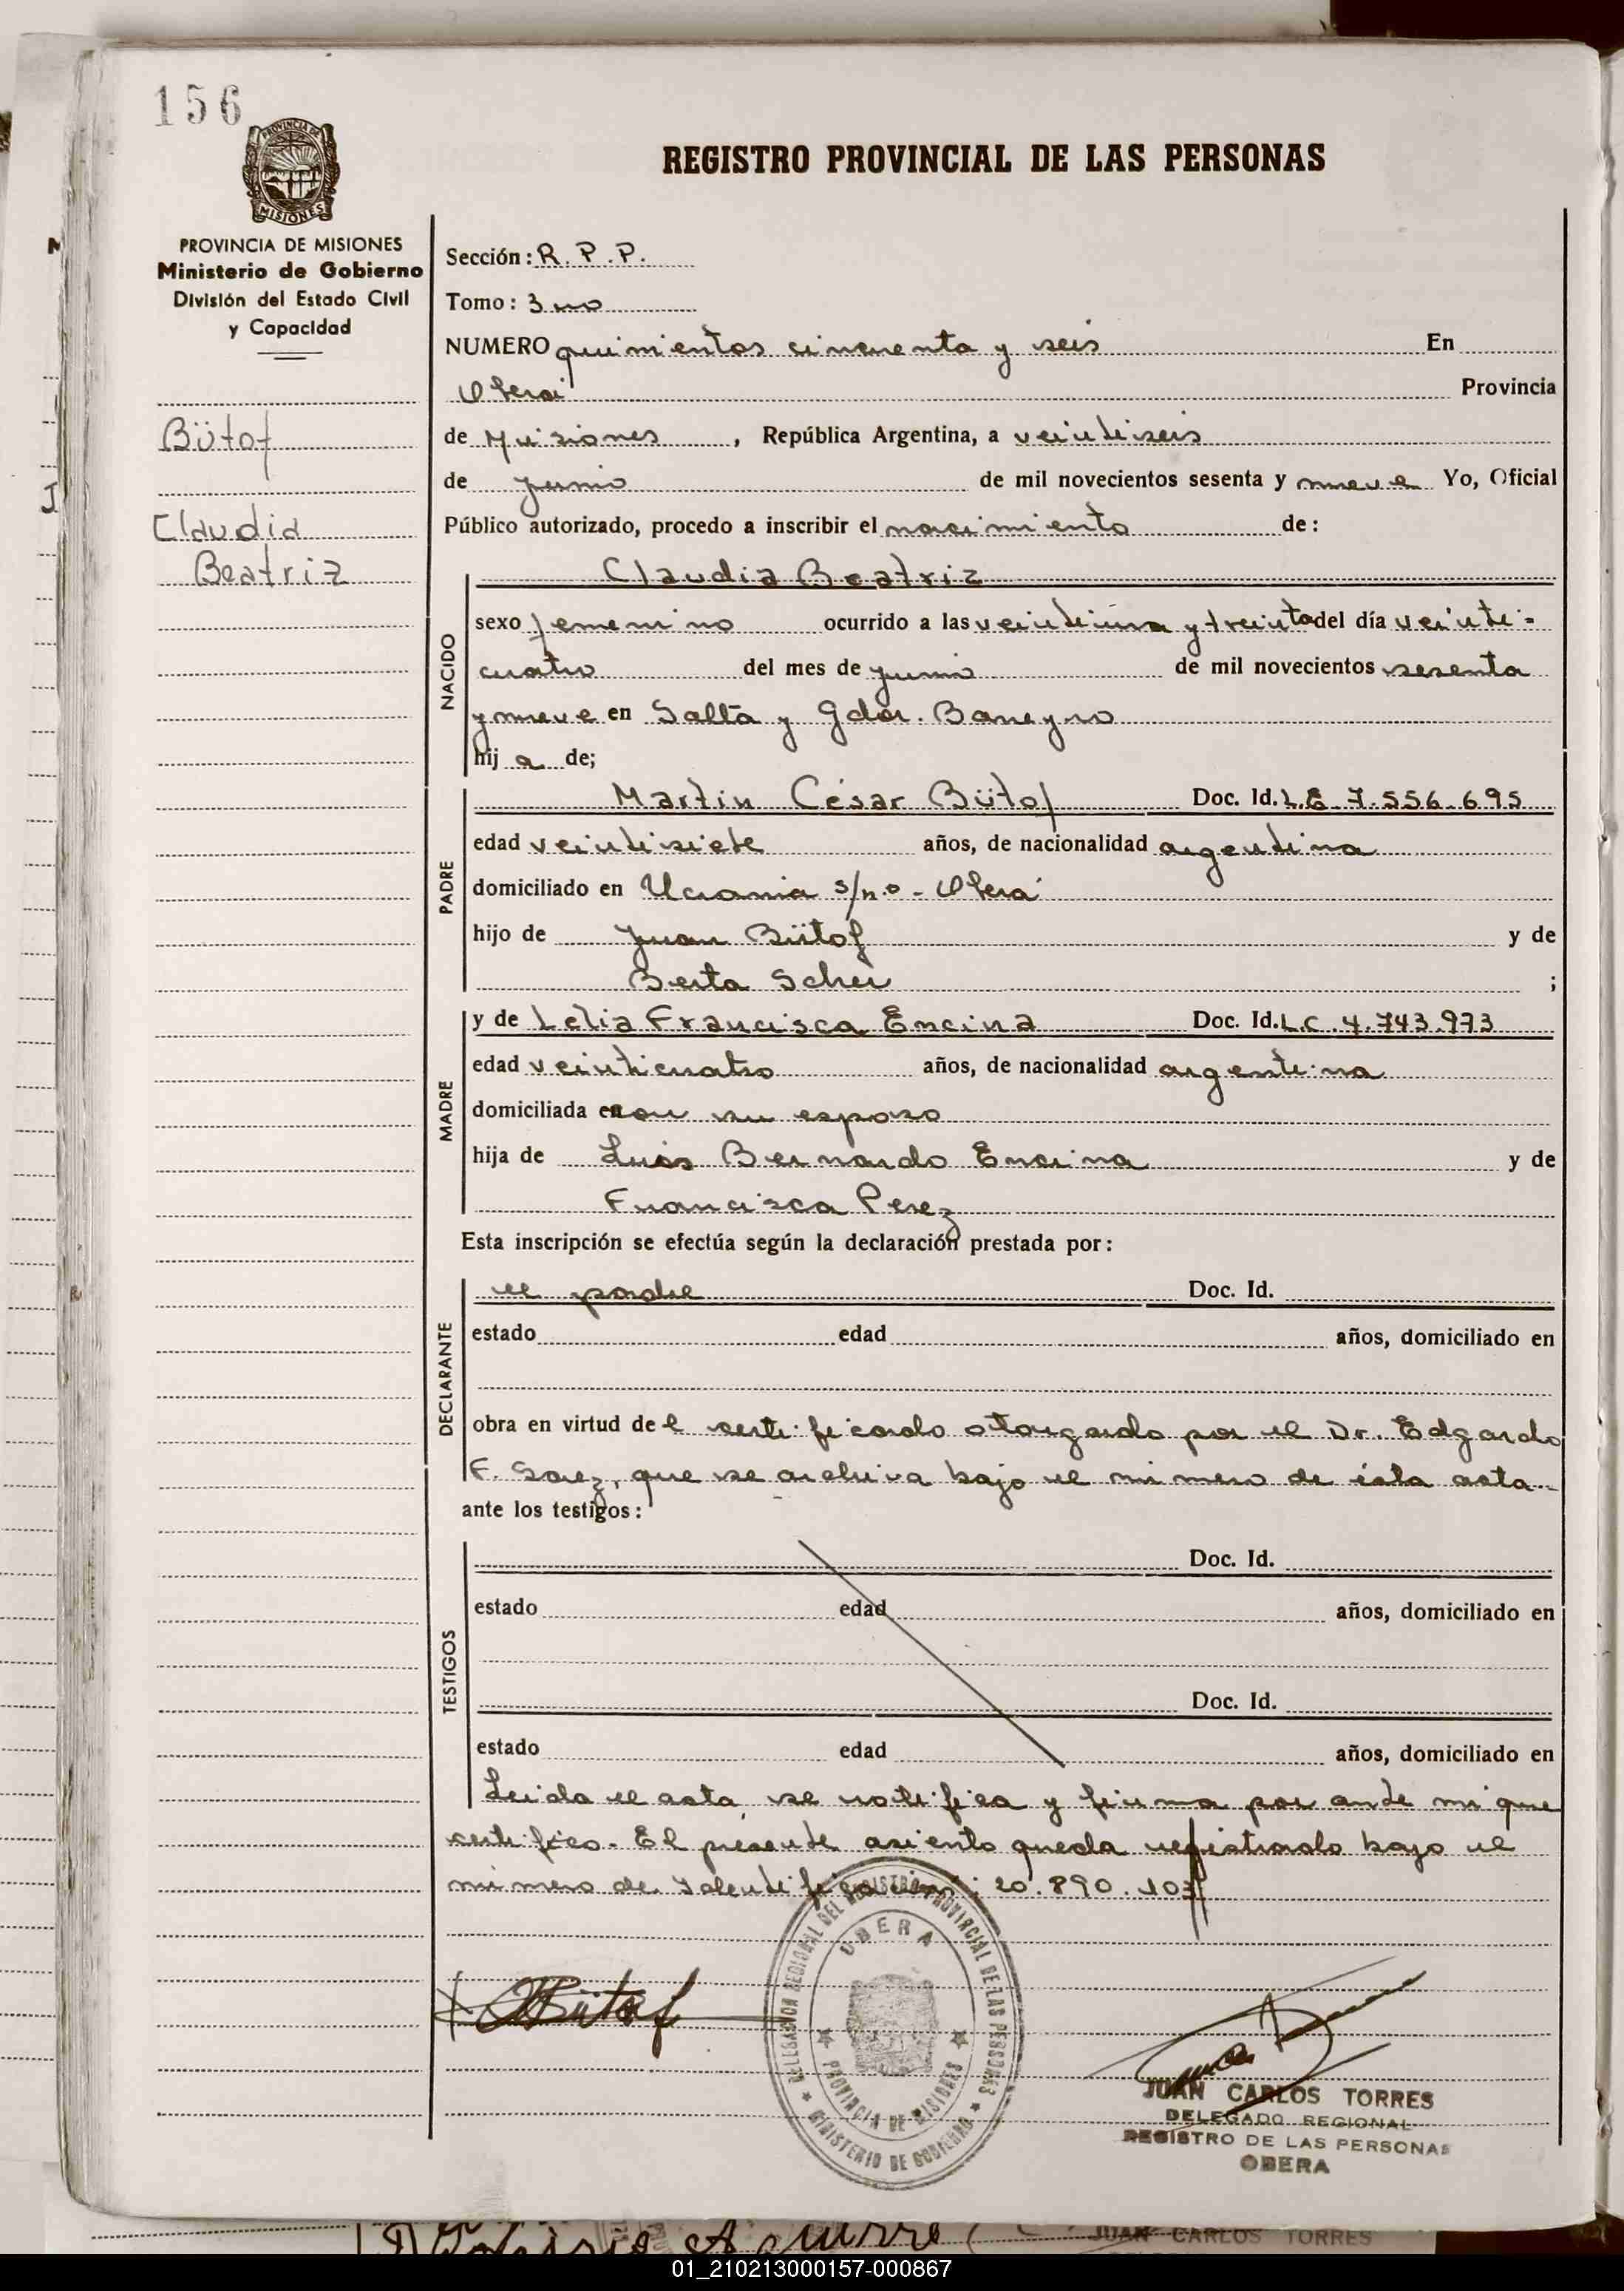 156
PROVINCIA DE
MISIONES
REGISTRO PROVINCIAL DE LAS PERSONAS
PROVINCIA DE MISIONES
Ministerio de Gobierno
División del Estado Civil
y Capacidad
Bütof
Claudia
Beatriz
Sección: R. P. P.
Tomo: 3
NUMERO quinientos cincuenta y seis En
Oberá Provincia
de Misiones, República Argentina, a veintiseis
de junio de mil novecientos sesenta y nueve Yo, Oficial
Público autorizado, procedo a inscribir el nacimiento de:
NACIDO
Claudia Beatriz
sexo femenino ocurrido a las veintiuna y treinta del día veinti-
cuatro del mes de junio de mil novecientos sesenta
y nueve en Salta y Gdor. Barreyro
hij a de;
PADRE
Martin César Bütof Doc. Id. L.E 7.556.695
edad veintisiete años, de nacionalidad argentina
domiciliado en Ucrania s/n.o - Oberá
hijo de Juan Bütof y de
Berta Scher ;
MADRE
y de Lelia Francisca Encina Doc. Id. L.C. 4.743.973
edad veinticuatro años, de nacionalidad argentina
domiciliada en con su esposo
hija de Luis Bernardo Encina y de
Francisca Perez
Esta inscripción se efectúa según la declaración prestada por:
DECLARANTE
el padre Doc. Id.
estado edad años, domiciliado en
obra en virtud de l certificado otorgado por el Dr. Edgardo
F. Saez, que se archiva bajo el número de ésta acta.-
ante los testigos:
TESTIGOS
Doc. Id.
estado edad años, domiciliado en
Doc. Id.
estado edad años, domiciliado en
Leida el acta, se notifica y firma por ante mi que
certifico. El presente asiento queda registrado bajo el
número de Identificación: 20.890.103
Bütof
DELEGACION REGIONAL DEL REGISTRO PROVINCIAL DE LAS PERSONAS
OBERA
PROVINCIA DE MISIONES
MINISTERIO DE GOBIERNO
JUAN CARLOS TORRES
DELEGADO REGIONAL
REGISTRO DE LAS PERSONAS
OBERA
JUAN CARLOS TORRES
01_210213000157-000867